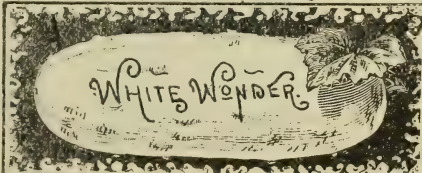 WHITE WONDER.